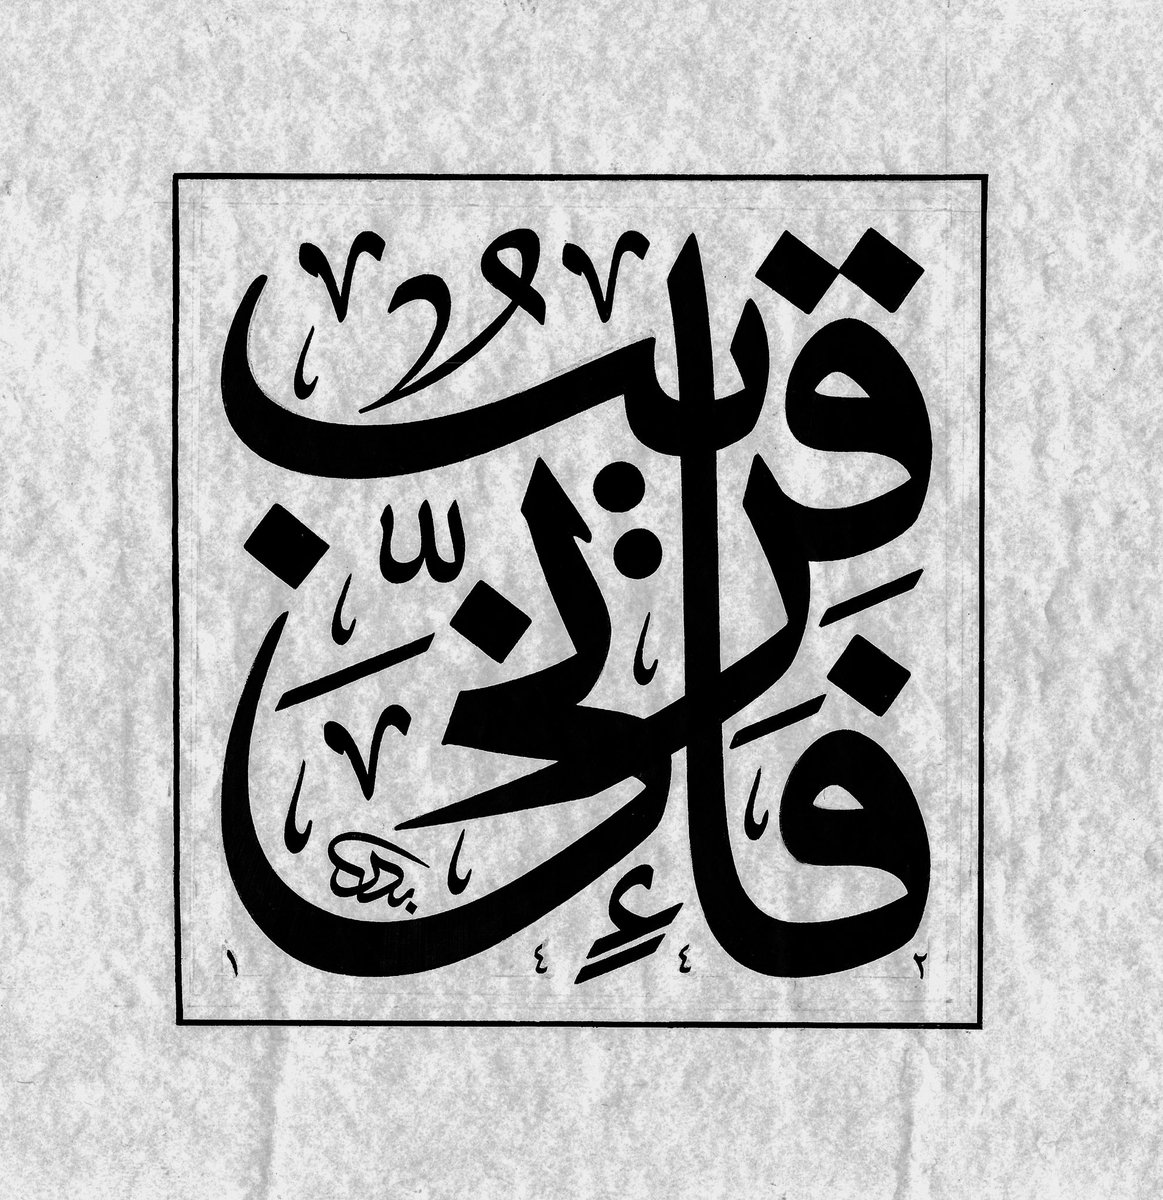 فَإِنِّي قَرِيبٌ
١٤٤٢